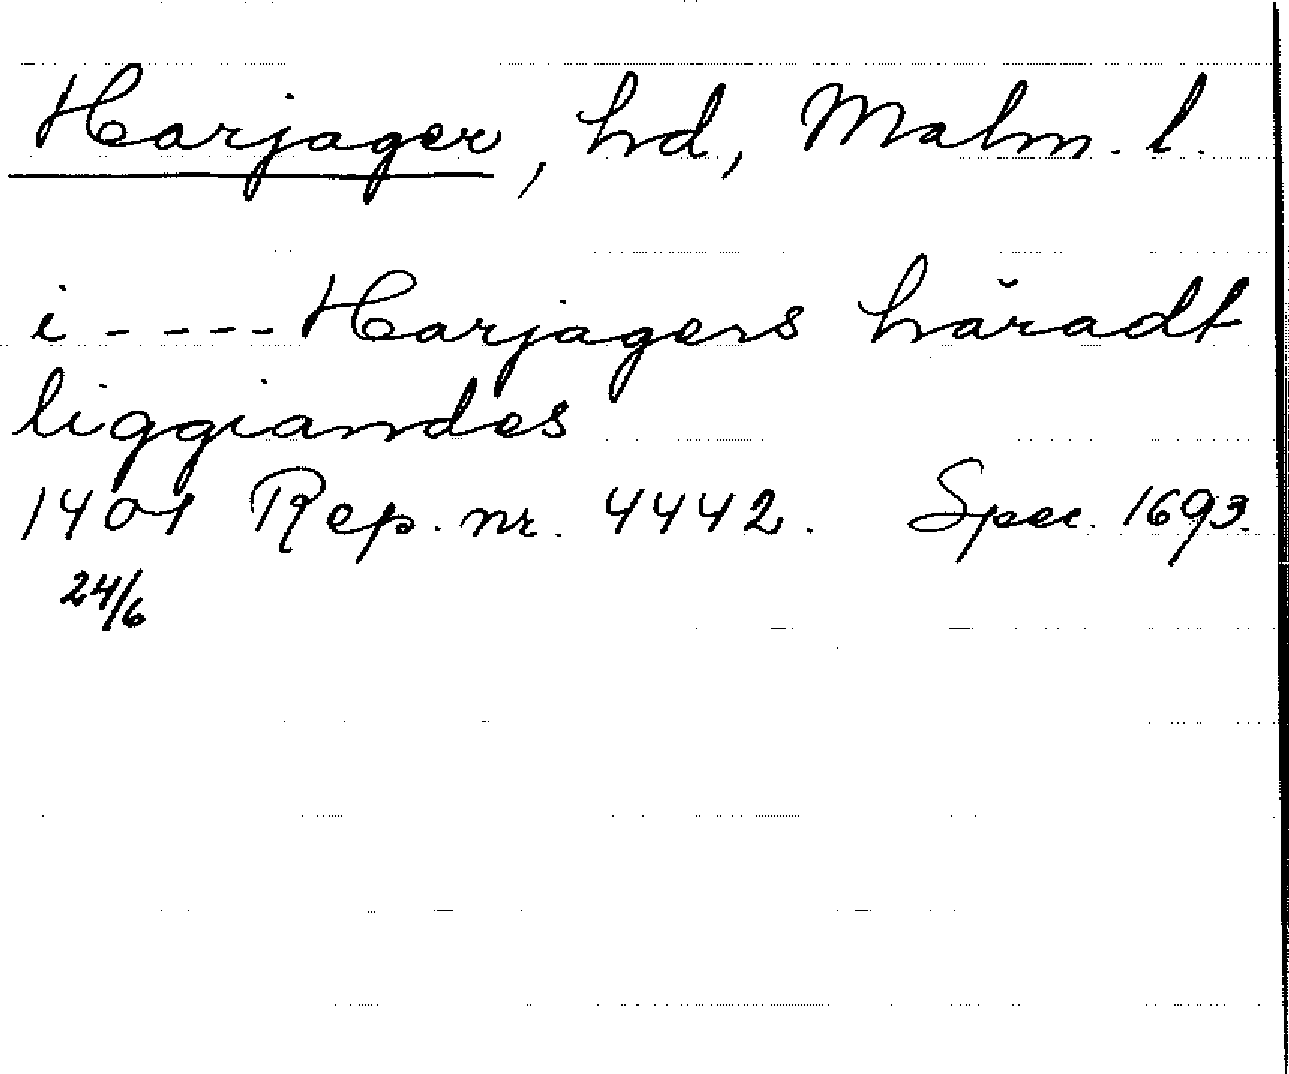 Harjager, hd, Malm. l.
i - - - - Harjagers häradt
liggiandes
1401 Rep. nr. 4442. Spec. 1693.
24/6